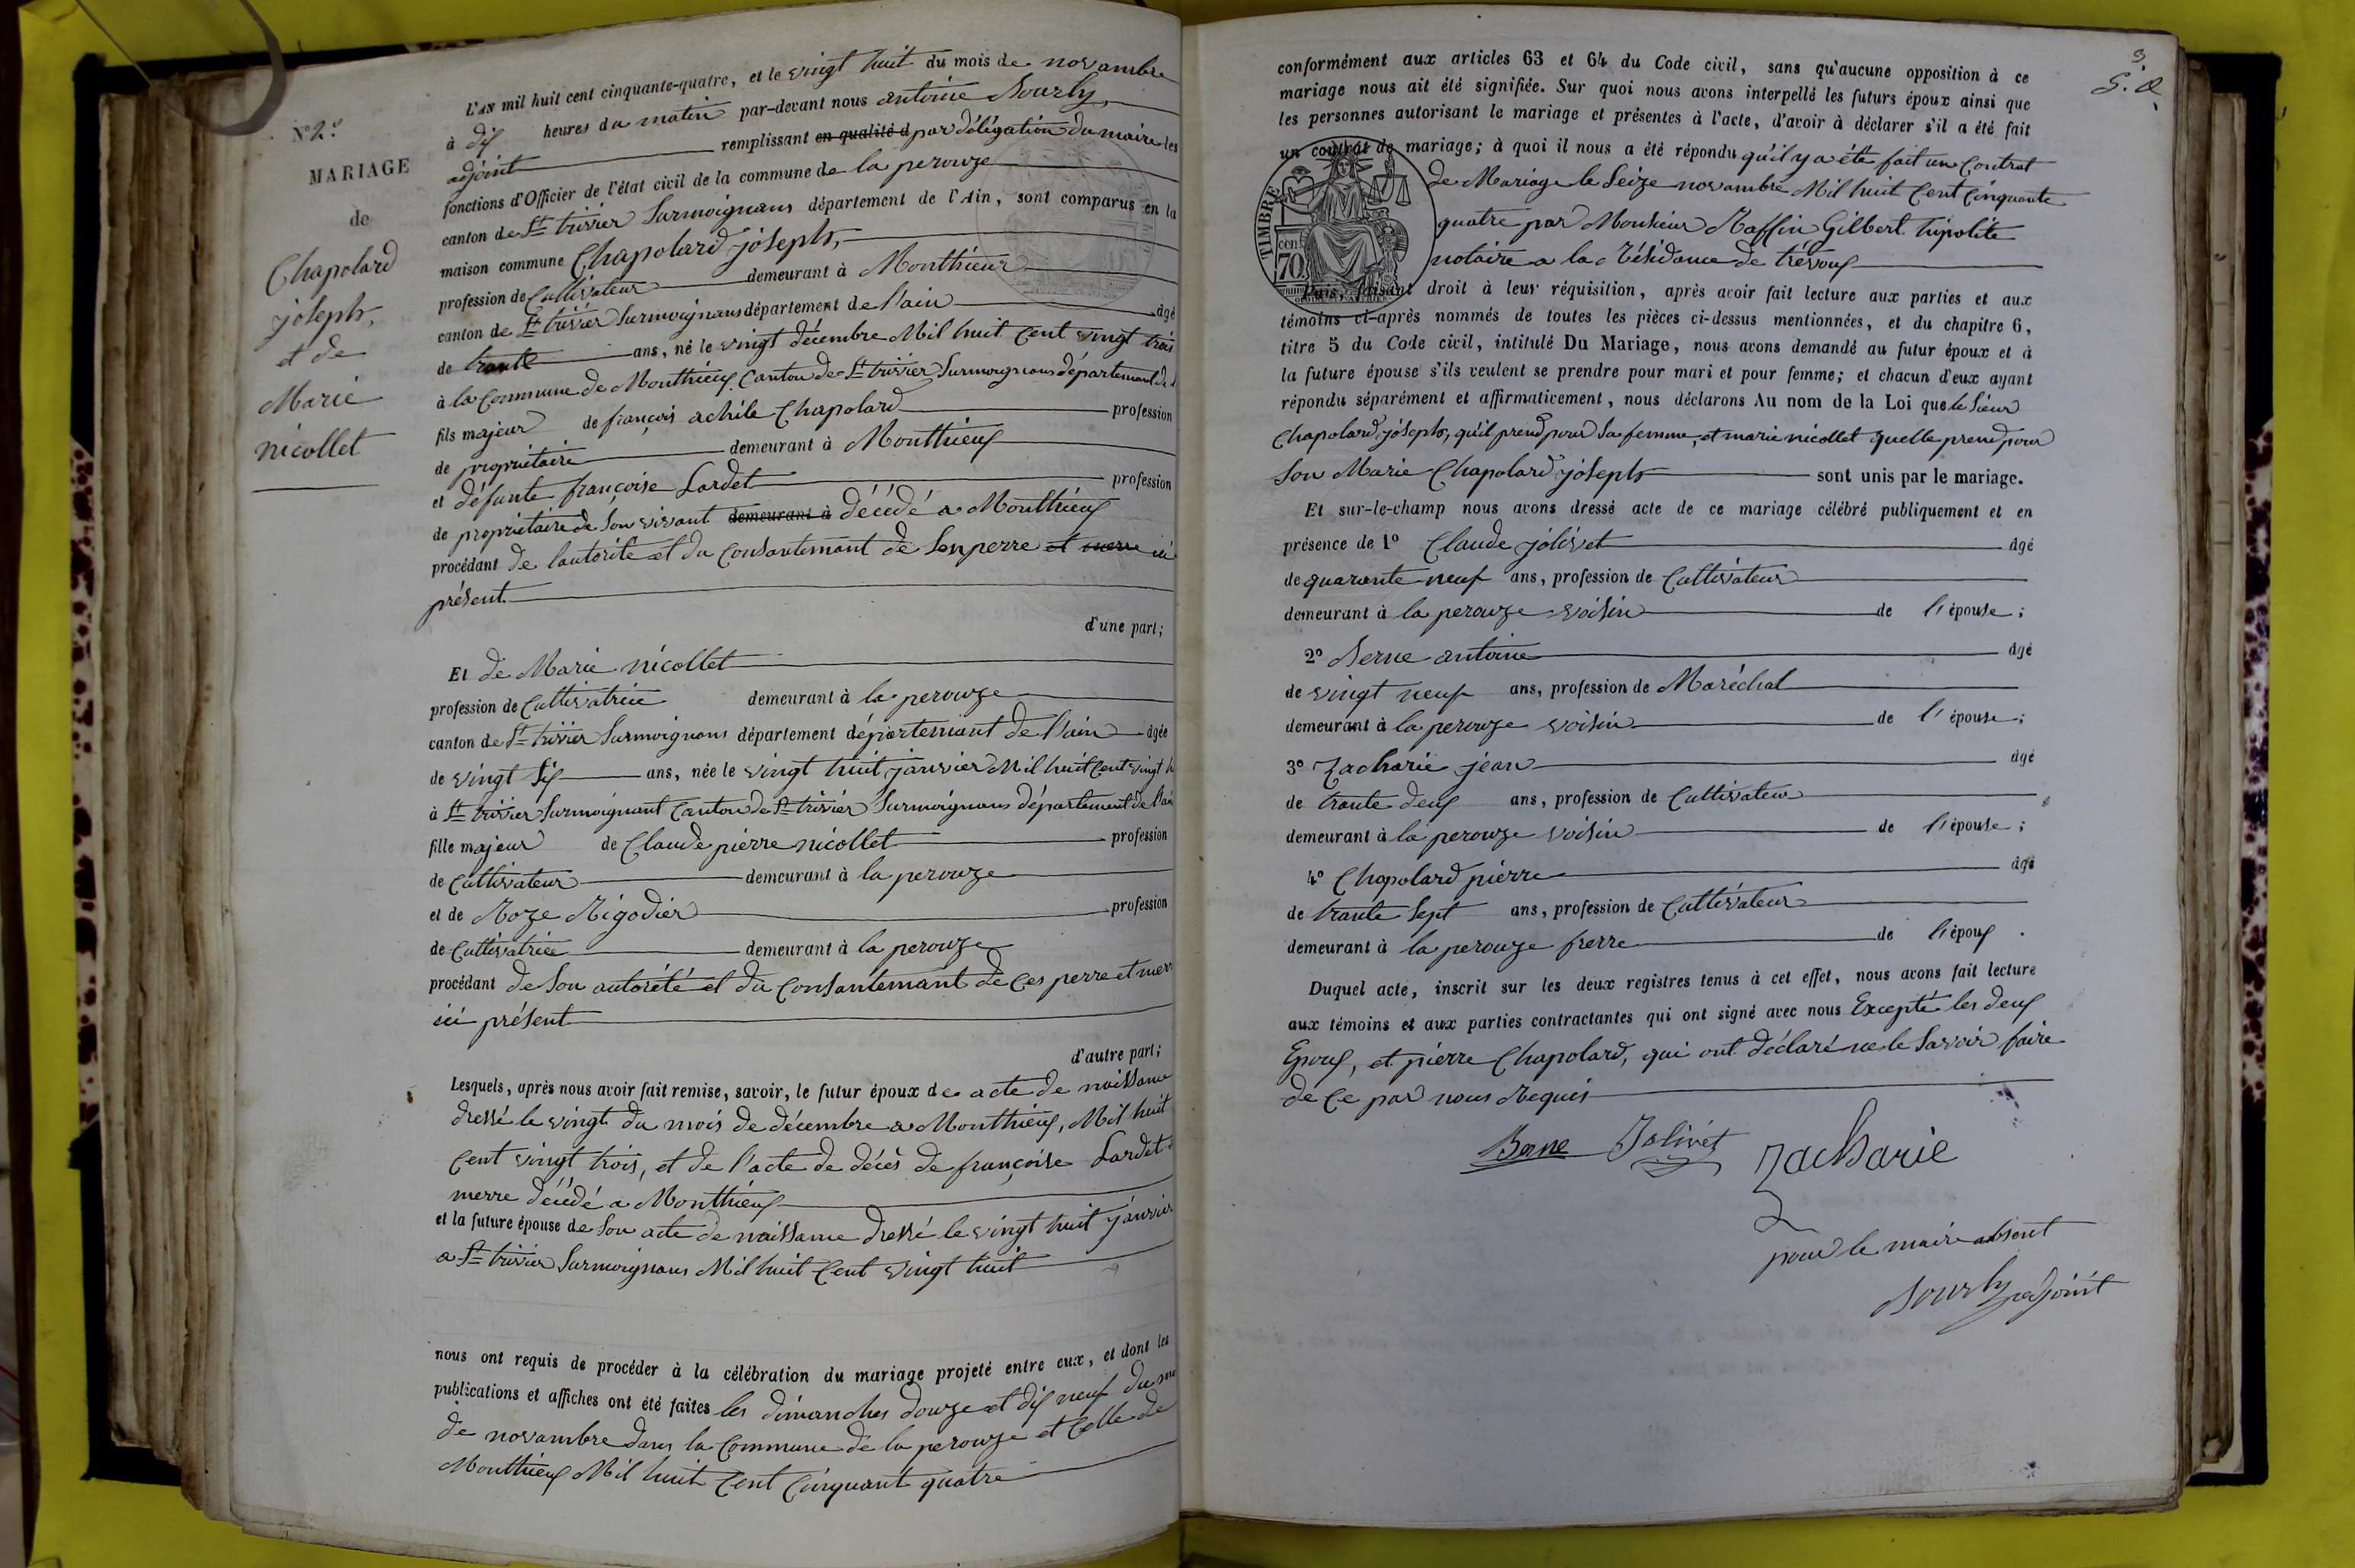 N° 2.
MARIAGE
de
Chapolard
joseph,
et de
Marie
nicollet
L'AN mil huit cent cinquante-quatre, et le vingt huit du mois de novambre
à dix heures du matin par-devant nous antoine Bourly,
adjoint remplissant en qualité d par délégation du maire les
fonctions d'Officier de l'état civil de la commune de la perouze
canton de St trivier Surmoignans département de l'Ain, sont comparus en la
maison commune Chapolard joseph,
profession de Cultivateur demeurant à Monthieux
canton de St trivier Surmoignans département de l'ain âgé
de trante ans, né le vingt décembre Mil huit Cent vingt trois
à la Commune de Monthieux Canton de St trivier Surmoignans département de
fils majeur de françois achile Chapolard profession
de propriétaire demeurant à Monthieux
et défunte françoise Lardet profession
de propriétaire de Son vivant demeurant à décédé a Monthieux
procédant de l'autorité et du Consantemant de Son perre et merre ici
présent
d'une part;
Et de Marie nicollet
profession de Cultivatrice demeurant à la perouze
canton de St trivier Surmoignans département départemant de l'ain âgée
de vingt Six ans, née le vingt huit janvier Mil huit Cent vingt h
à St trivier Surmoignant Canton de St trivier Surmoignans département de l'ain
fille majeur de Claude pierre nicollet profession
de Cultivateur demeurant à la perouze
et de Roze Rigodier profession
de Cultivatrice demeurant à la perouze
procédant de Son autorité et du Consantemant de Ces perre et merr
ici présent
d'autre part;
Lesquels, après nous avoir fait remise, savoir, le futur époux de acte de naissance
dressé le vingt du mois de décembre a Monthieux, Mil huit
Cent vingt trois, et de l'acte de décès de françoise Lardet
merre décédé a Monthieux
et la future épouse de Son acte de naissance dressé le vingt huit janvier
a St trivier Surmoignans Mil huit Cent vingt huit
nous ont requis de procéder à la célébration du mariage projeté entre eux, et dont les
publications et affiches ont été faites les dimanches douze et dix neuf du
de novambre dans la Commune de la perouze et Celle de
Monthieux Mil huit Cent Cinquant quatre
3.
conformément aux articles 63 et 64 du Code civil, sans qu'aucune opposition à ce
mariage nous ait été signifiée. Sur quoi nous avons interpellé les futurs époux ainsi que
les personnes autorisant le mariage et présentes à l'acte, d'avoir à déclarer s'il a été fait
un contrat de mariage; à quoi il nous a été répondu qu'il y a été fait un Contrat
de Mariage le Seize novambre Mil huit Cent Cinquante
quatre par Monsieur Raffin Gilbert hipolite
notaire a la Résidance de trévoux
TIMBRE
cen.
70
Puis, faisant droit à leur réquisition, après avoir fait lecture aux parties et aux
témoins ci-après nommés de toutes les pièces ci-dessus mentionnées, et du chapitre 6,
titre 5 du Code civil, intitulé Du Mariage, nous avons demandé au futur époux et à
la future épouse s'ils veulent se prendre pour mari et pour femme; et chacun d'eux ayant
répondu séparément et affirmativement, nous déclarons Au nom de la Loi que le Sieur
Chapolard joseph, qu'il prend pour Sa femme, et marie nicollet quelle prend pour
Son Marie Chapolard joseph sont unis par le mariage.
Et sur-le-champ nous avons dressé acte de ce mariage célébré publiquement et en
présence de 1° Claude jolivet âgé
de quarante neuf ans, profession de Cultivateur
demeurant à la perouze voisin de l'épouse;
2° Berne antoine âgé
de vingt neuf ans, profession de Maréchal
demeurant à la perouze voisin de l'épouse;
3° Zacharie jean âgé
de trante deux ans, profession de Cultivateur
demeurant à la perouze voisin de l'épouse;
4° Chapolard pierre âgé
de trante Sept ans, profession de Cultivateur
demeurant à la perouze frerre de l'époux.
Duquel acte, inscrit sur les deux registres tenus à cet effet, nous avons fait lecture
aux témoins et aux parties contractantes qui ont signé avec nous Excepté les deux
Epoux, et pierre Chapolard, qui ont déclaré ne le Savoir faire
de Ce par nous Requis
Berne Jolivet Zacharie
pour le maire absent
Bourly adjoint